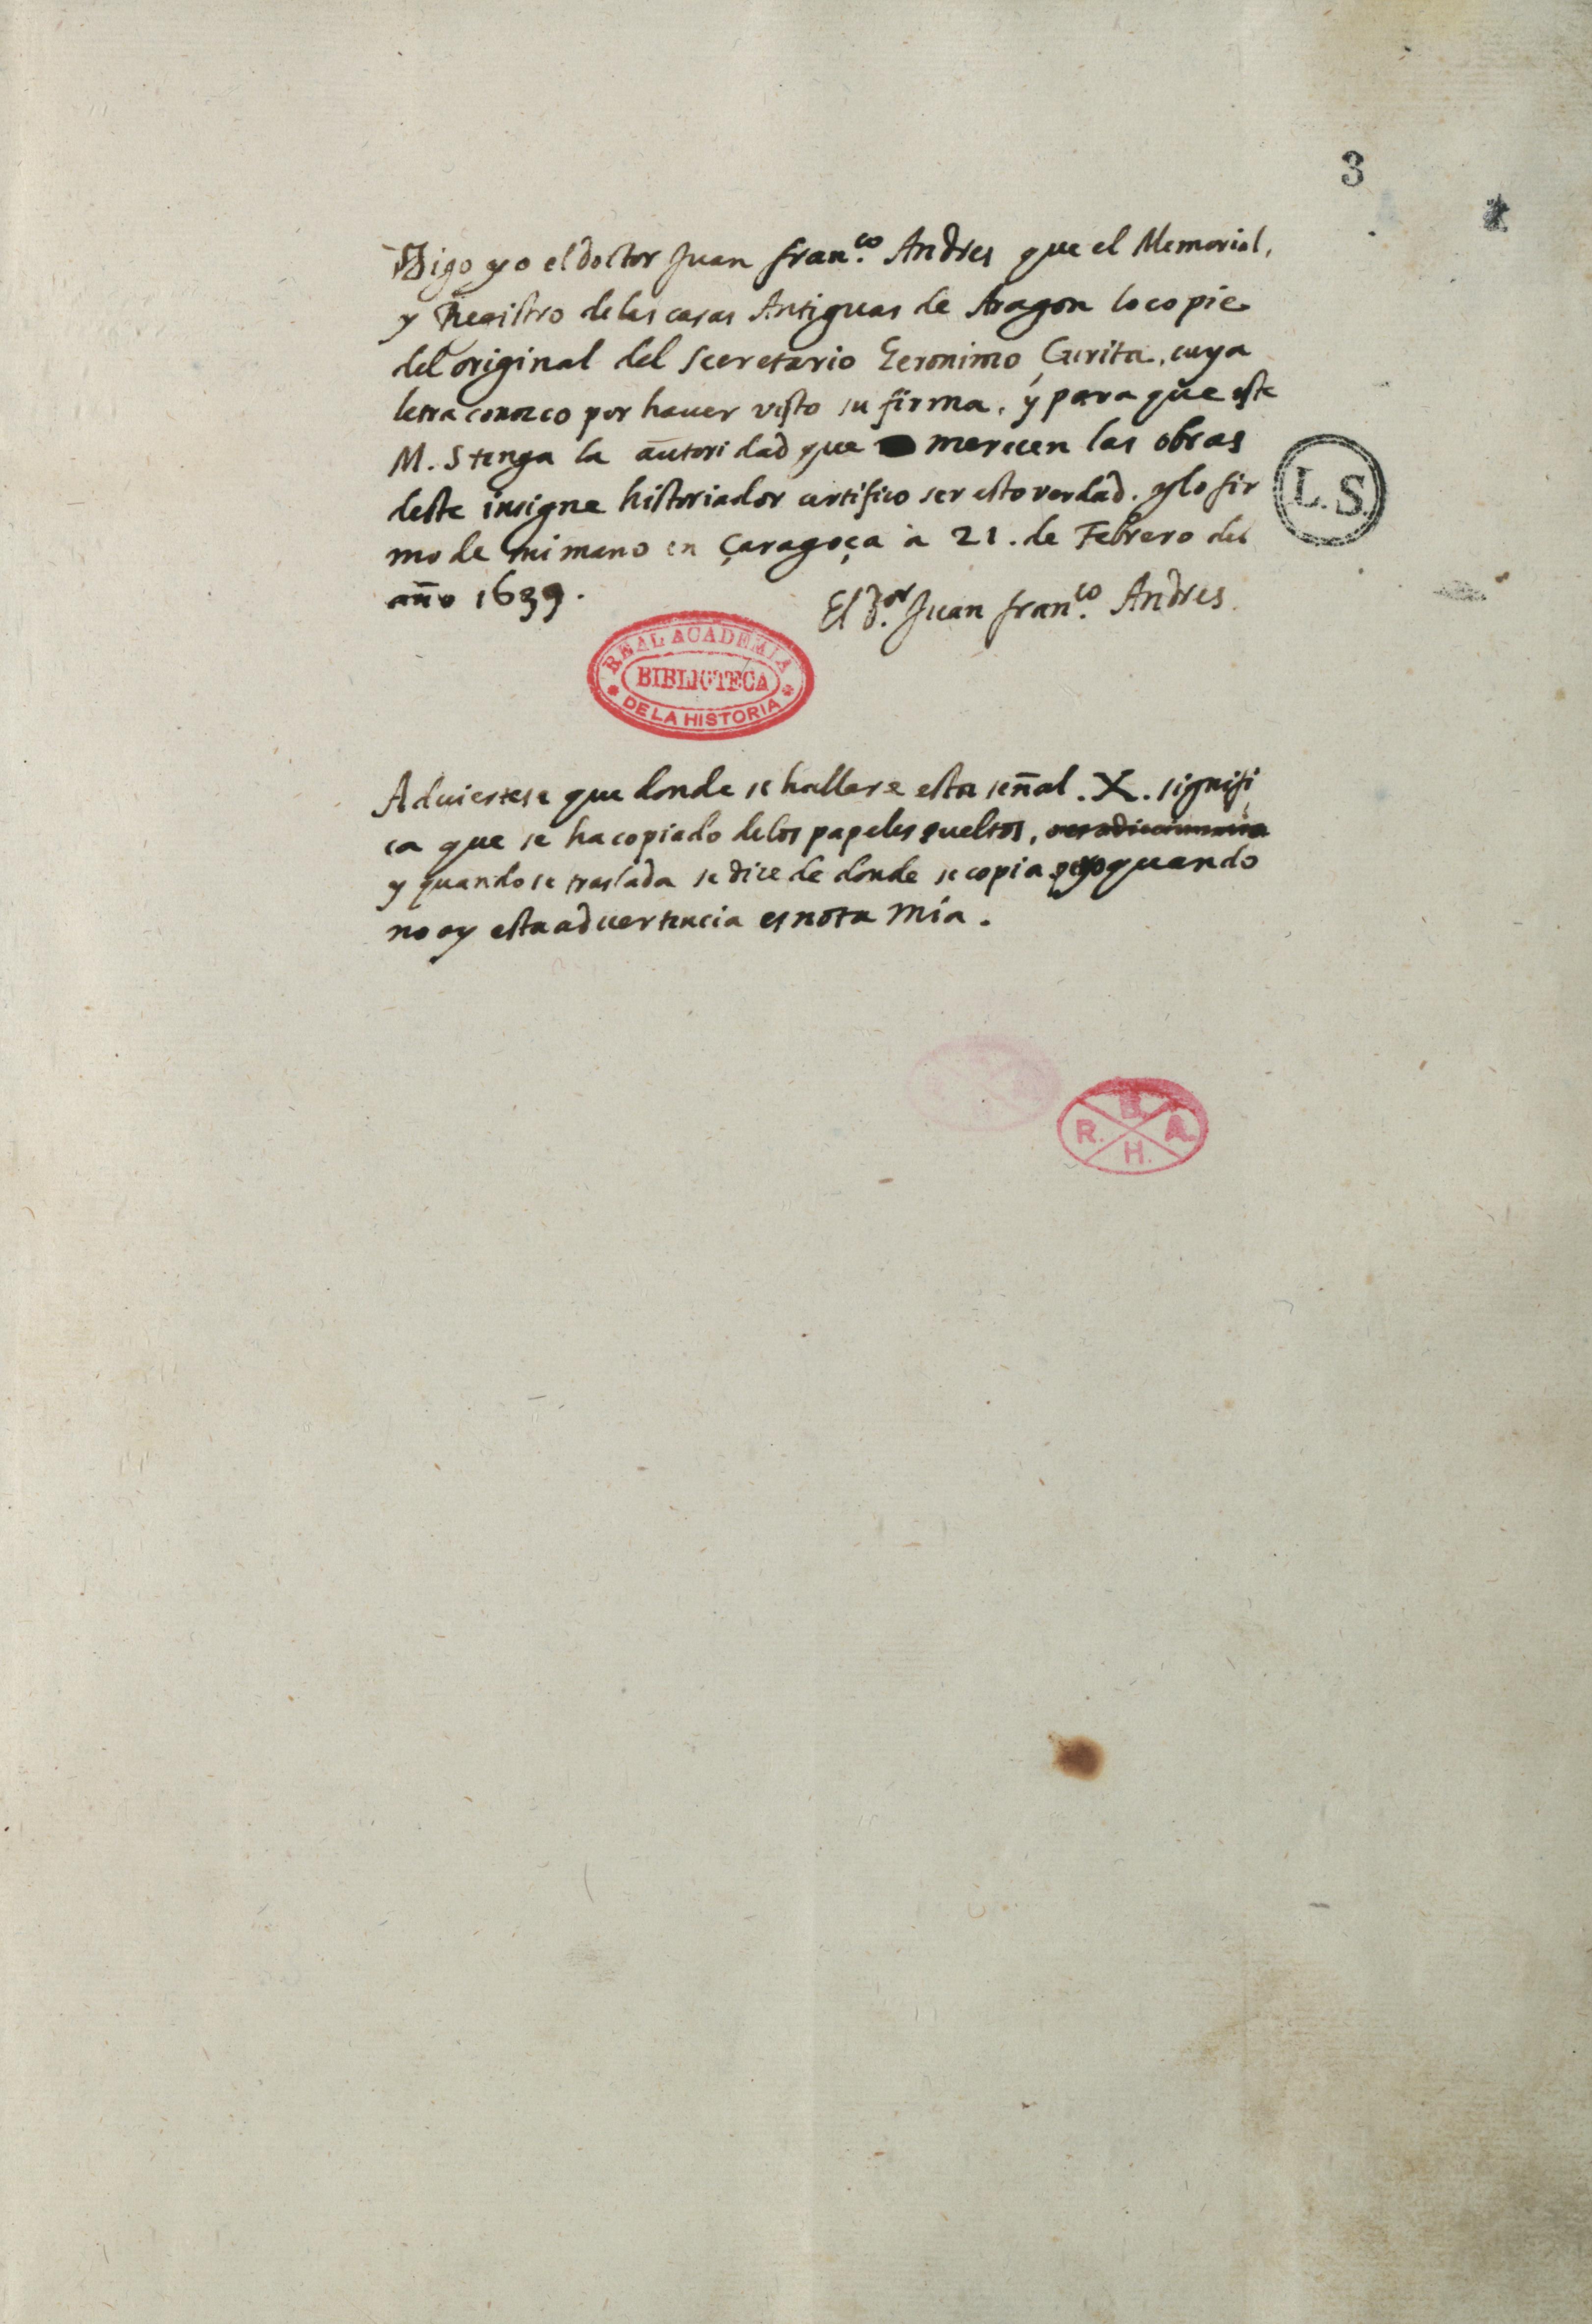 3
Digo yo el doctor Juan fran.co Andres que el Memorial,
y Registro de las casas Antiguas de Aragon lo copie
del original del Secretario Geronimo Çurita, cuya
letra conozco por hauer visto su firma, y para que este
M. S tenga la autoridad que merecen las obras
deste insigne historiador certifico ser esto verdad. y lo fir
mo de mi mano en Çaragoça à 21. de Febrero del
año 1639.
El D.or Juan fran.co Andres.
L.S.
REAL ACADEMIA
BIBLIOTECA
DE LA HISTORIA
Aduiertese que donde se hallare esta señal. X. signifi
ca que se ha copiado de los papeles sueltos,
y quando se traslada se dice de donde se copia pero quando
no ay esta advertencia es nota mía.
B.
R. A.
H.